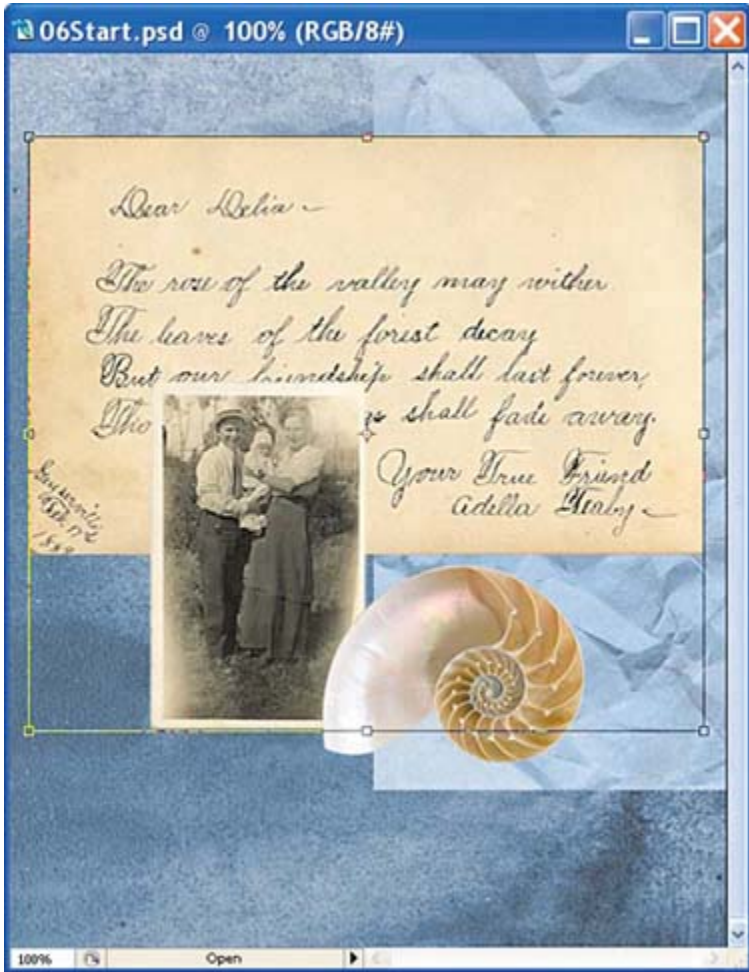 06Start.psd @ 100% (RGB/8#)
Dear Delia
The rose of the valley may wither
The leaves of the forest decay
But our friendship shall last forever,
Tho shall fade away.
Your True Friend
Adella
100%
Open